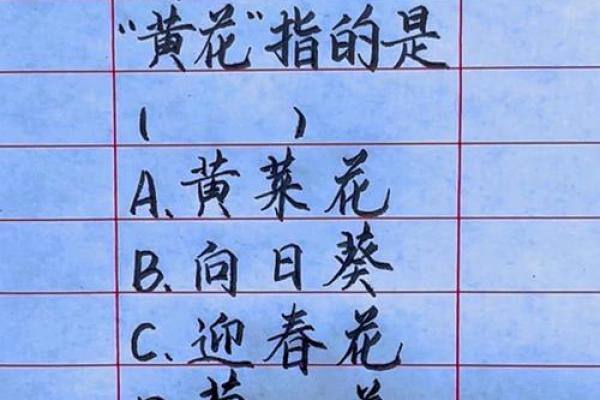 “黄花”指的是
(　　)
A、黄莱花
B、向日葵
C、迎春花